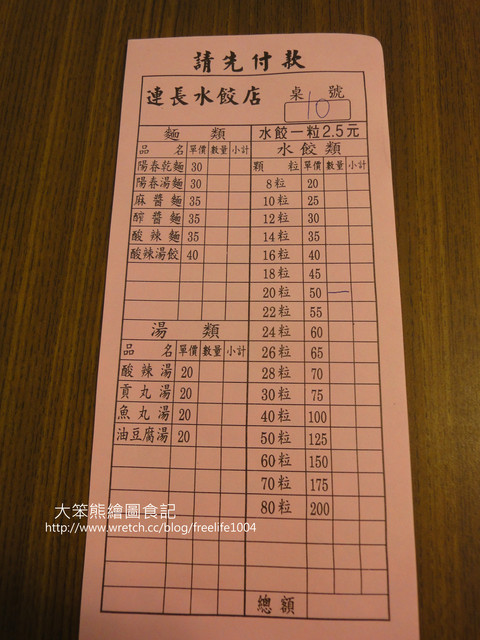 請先付款
連長水餃店 桌號 10
麵類
品名 單價 數量 小計
陽春乾麵 30
陽春湯麵 30
麻醬麵 35
酢醬麵 35
酸辣麵 35
酸辣湯餃 40
湯類
品名 單價 數量 小計
酸辣湯 20
貢丸湯 20
魚丸湯 20
油豆腐湯 20
水餃一粒2.5元
水餃類
顆粒 單價 數量 小計
8粒 20
10粒 25
12粒 30
14粒 35
16粒 40
18粒 45
20粒 50 一
22粒 55
24粒 60
26粒 65
28粒 70
30粒 75
40粒 100
50粒 125
60粒 150
70粒 175
80粒 200
總額
大笨熊繪圖食記
http://www.wretch.cc/blog/freelife1004